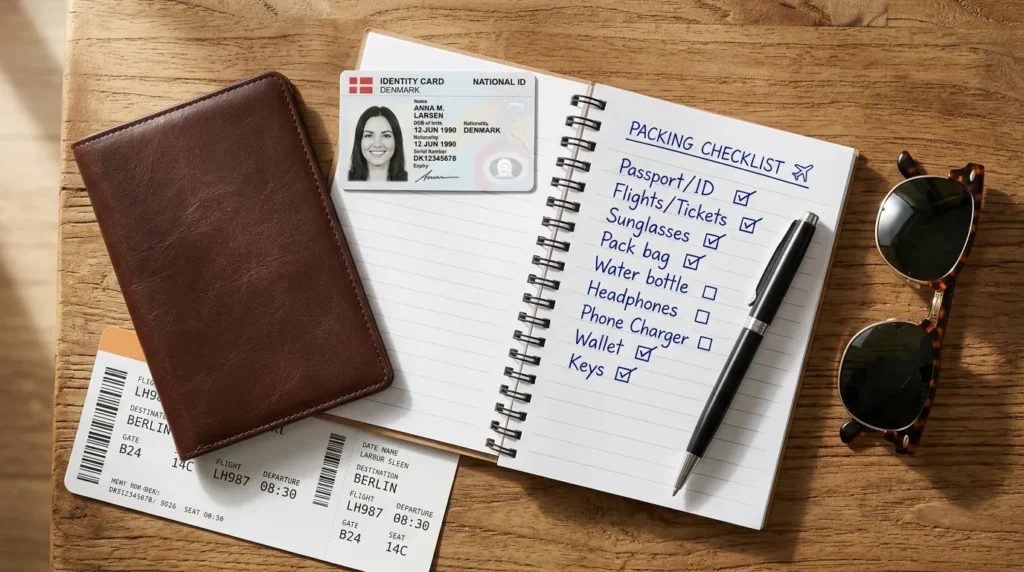 IDENTITY CARD
DENMARK
NATIONAL ID
Name
ANNA M.
LARSEN
DOB of birth.
12 JUN 1990
Nationality,
DENMARK
12 JUN 1990
Serial Number
DK12345678
Expiry
PACKING CHECKLIST
Passport/ID
Flights/Tickets
Sunglasses
Pack bag
Water bottle
Headphones
Phone Charger
Wallet
Keys
FLIGH
LH98
DESTINAT
BERLIN
GATE
B24
14C
FLIGHT
LH987
DEPARTURE
08:30
SEAT 08:30
DATE NAME
LARBUR SLEEN
DESTINATION
BERLIN
FLIGHT
LH987
DEPARTURE
08:30
GATE
B24
SEAT
14C